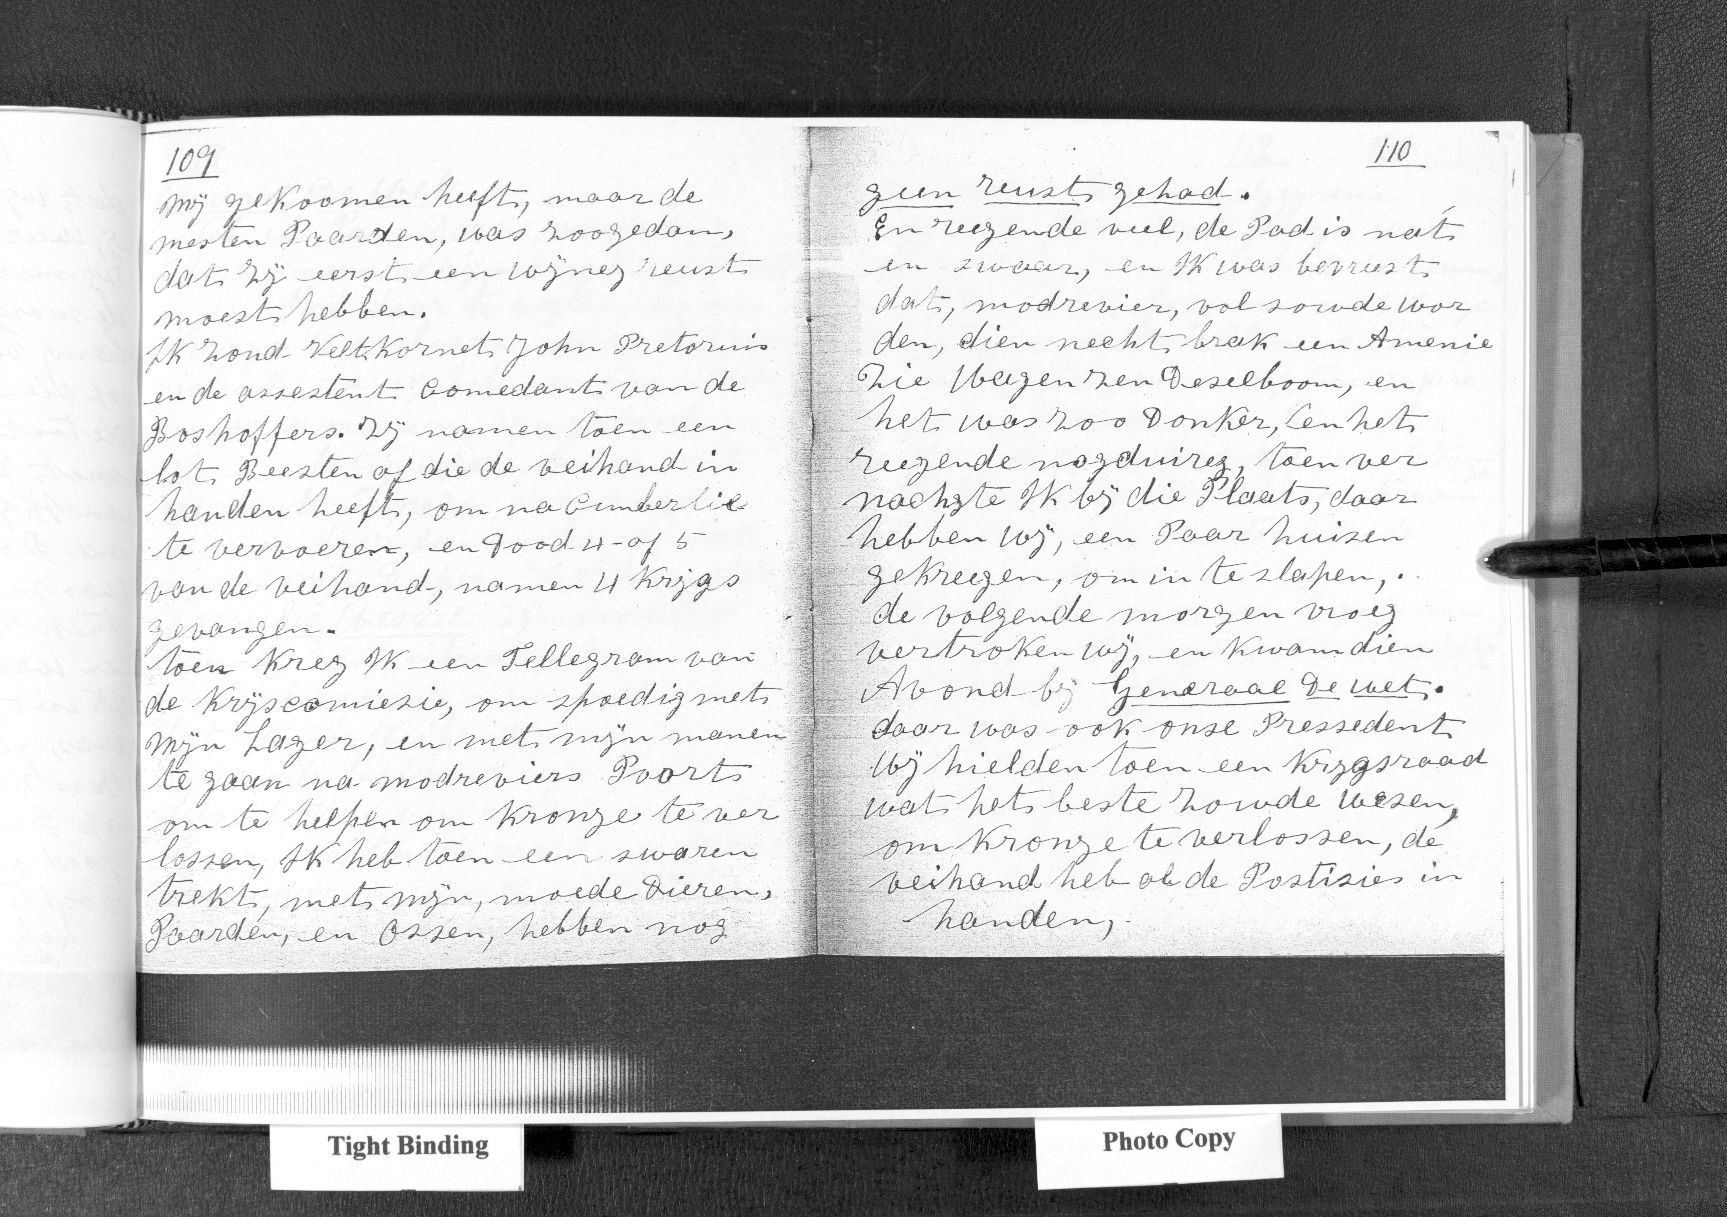 109
mÿ gekoomen heeft, maar de
mesten Paarden, was zoogedan,
dat zÿ eerst een wÿneg reust
moest hebben.
Ik zond Velt Kornet John Pretorius
en de assestent Comedant van de
Boshoffers. Zÿ namen toen een
lot Beesten af die de veihand in
handen heeft, om na Cumberlie
te vervoeren, en Dood 4 of 5
van de veihand, namen 4 Krÿgs
gevangen.
toen Kreg Ik een Tellegram van
de Krÿscomiesie, om spoedig met
mÿn Lager, en met mÿn manen
te gaan na modreviers Poort
om te helpen om Kronge te ver
lossen, Ik heb toen een swaren
trekt, met mÿn, moede Dieren,
Paarden, en Ossen, hebben nog
110
geen reust gehad.
En reegende veel, de Pad is nat
en swaar, en Ik was bevreest
dat, modrevier, vol soude wor
den, dien necht brak een Amenie
Zie Wagen zen Deselboom, en
het was zoo Donker, en het
reegende nogduireg, toen ver
nachte Ik bÿ die Plaats, daar
hebben wÿ, een Paar huisen
gekreegen, om in te slapen,.
de volgende morgen vroeg
vertroken wÿ, en kwam dien
Avond bÿ Generaal De wet.
daar was ook onse Pressedent
Wÿ hielden toen een Krÿgsraad
wat het beste zoude wesen,
om Kronge te verlossen, de
veihand heb al de Postisies in
handen,.
Tight Binding
Photo Copy